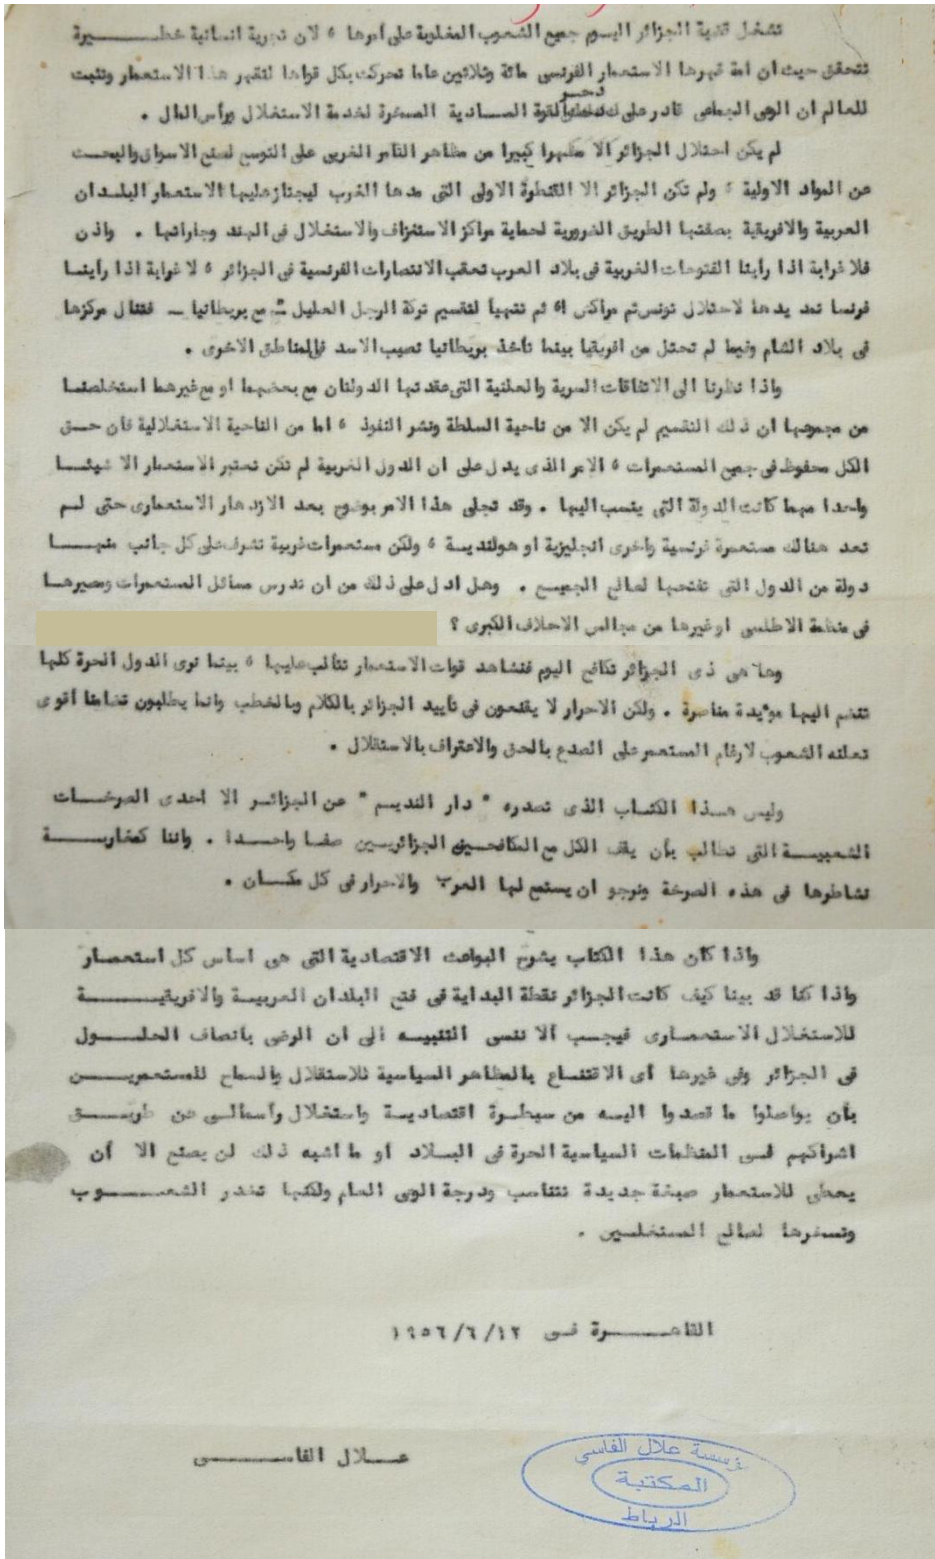 تشغل قضية الجزائر اليوم جميع الشعوب المغلوبة على أمرها ، لان تجربة انسانية خطيرة
تتحقق حيث ان امة قهرها الاستعمار الفرنسى مائة وثلاثين عاما تحركت بكل قواها لتقهر هذا الاستعمار وتثبت
للعالم ان الوعى الجماعى قادر على دحر القوة المادية المسخرة لخدمة الاستغلال ورأس المال .
لم يكن احتلال الجزائر الا مظهرا كبيرا من مظاهر التآمر الغربى على التوسع لفتح الاسواق والبحث
عن المواد الاولية ، ولم تكن الجزائر الا القنطرة الاولى التى مدها الغرب ليجتاز عليها الاستعمار البلدان
العربية والافريقية بصفتها الطريق الضرورية لحماية مراكز الاستنزاف والاستغلال فى الهند وجاراتها . واذن
فلا غرابة اذا رأينا الفتوحات الغربية فى بلاد العرب تعقب الانتصارات الفرنسية فى الجزائر ، لا غرابة اذا رأينا
فرنسا تمد يدها لاحتلال تونس ثم مراكش ثم تتهيأ لتقسيم تركة الرجل العليل ـ مع بريطانيا ـ فتنال مركزها
فى بلاد الشام وفيما لم تحتل من افريقيا بينما تأخذ بريطانيا نصيب الاسد فى المناطق الاخرى .
واذا نظرنا الى الاتفاقات السرية والعلنية التى عقدتها الدولتان مع بعضهما او مع غيرهما استخلصنا
من مجموعها ان ذلك التقسيم لم يكن الا من ناحية السلطة ونشر النفوذ ، اما من الناحية الاستغلالية فان حق
الكل محفوظ فى جميع المستعمرات ، الامر الذى يدل على ان الدول الغربية لم تكن تعتبر الاستعمار الا شيئا
واحدا مهما كانت الدولة التى ينسب اليها . وقد تجلى هذا الامر بوضوح بعد الازدهار الاستعمارى حتى لم
تعد هنالك مستعمرة فرنسية واخرى انجليزية او هولندية ، ولكن مستعمرات غربية تشرف على كل جانب منها
دولة من الدول التى تفتحها لصالح الجميع . وهل ادل على ذلك من ان تدرس مسائل المستعمرات ومصيرها
فى منظمة الاطلسى او غيرها من مجالس الاحلاف الكبرى ؟
وها هى ذى الجزائر تكافح اليوم فنشاهد قوات الاستعمار تتألب عليها ، بينما نرى الدول الحرة كلها
تنضم اليها مؤيدة مناصرة . ولكن الاحرار لا يقنعون فى تأييد الجزائر بالكلام وبالخطب وانما يطلبون تضامنا أقوى
تعلنه الشعوب لارغام المستعمر على الصدع بالحق والاعتراف بالاستقلال .
وليس هذا الكتاب الذى تصدره " دار النديم " عن الجزائر الا احدى الصرخات
الشعبية التى تطالب بأن يقف الكل مع المكافحين الجزائريين صفا واحدا . واننا كمغاربة
نشاطرها فى هذه الصرخة ونرجو ان يستمع لها العرب والاحرار فى كل مكان .
واذا كان هذا الكتاب يشرح البواعث الاقتصادية التى هى اساس كل استعمار
واذا كنا قد بينا كيف كانت الجزائر نقطة البداية فى فتح البلدان العربية والافريقية
للاستغلال الاستعمارى فيجب ألا ننسى التنبيه الى ان الرضى بأنصاف الحلول
فى الجزائر وفى غيرها أى الاقتناع بالمظاهر السياسية للاستقلال والسماح للمستعمرين
بأن يواصلوا ما قصدوا اليه من سيطرة اقتصادية واستغلال رأسمالى عن طريق
اشراكهم فى المنظمات السياسية الحرة فى البلاد أو ما اشبه ذلك لن يصنع الا أن
يعطى للاستعمار صبغة جديدة تتناسب ودرجة الوعى العام ولكنها تخدر الشعوب
وتسخرها لصالح المستغلين .
القاهرة فى ١٩٥٦/٦/١٢
علال الفاسى
مؤسسة علال الفاسي
المكتبة
الرباط